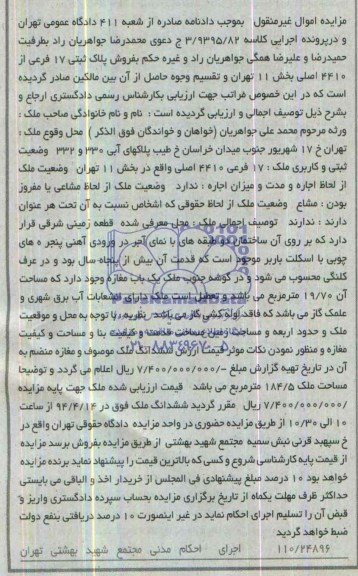 مزایده اموال غیرمنقول   بموجب دادنامه صادره از شعبه ۴۱۱ دادگاه عمومی تهران
و درپرونده اجرایی کلاسه ۳/۹۳۹۵/۸۲ ج دعوی محمدرضا جواهریان راد بطرفیت
حمیدرضا و علیرضا همگی جواهریان راد و غیره حکم بفروش پلاک ثبتی ۱۷ فرعی از
۴۴۱۰ اصلی بخش ۱۱ تهران و تقسیم وجوه حاصل از آن بین مالکین صادر گردیده
است که در این خصوص مراتب جهت ارزیابی بکارشناس رسمی دادگستری ارجاع و
بشرح ذیل توصیف اجمالی و ارزیابی گردیده است :  نام و نام خانوادگی صاحب ملک :
ورثه مرحوم محمد علی جواهریان (خواهان و خواندگان فوق الذکر )  محل وقوع ملک :
تهران خ ۱۷ شهریور جنوب میدان خراسان خ طیب پلاکهای آبی ۳۳۰ و ۳۳۲   وضعیت
ثبتی و کاربری ملک : ۱۷ فرعی ۴۴۱۰ اصلی واقع در بخش ۱۱ تهران   وضعیت ملک
از لحاظ اجاره و مدت و میزان اجاره : ندارد   وضعیت ملک از لحاظ مشاعی یا مفروز
بودن : مشاع   وضعیت ملک از لحاظ حقوقی که اشخاص نسبت به آن تحت هر عنوان
دارند : ندارند   توصیف اجمالی ملک : محل معرفی شده  قطعه زمینی شرقی قرار
دارد که بر روی آن ساختمان دو طبقه های با نمای آجر در ورودی آهنی پنجره های
چوبی با اسکلت باربر موجود است که قدمت آن بیش از پنجاه سال بود و در عرف
کلنگی محسوب می شود و در گوشه جنوب ملک یک باب مغازه وجود دارد که مساحت
آن ۱۹/۷۰ مترمربع می باشد و تعطیل است ملک دارای انشعابات آب برق شهری و
علمک گاز می باشد که فاقد لوله کشی گاز می باشد  نظریه : با توجه به محل و موقعیت
ملک و حدود اربعه و مساحت زمین مساحت قدمت و کیفیت بنا و مساحت و کیفیت
مغازه و منظور نمودن نکات موثر قیمت ارزش ششدانگ ملک موصوف و مغازه منضم به
آن در تاریخ تهیه گزارش مبلغ -/۷/۴۰۰/۰۰۰/۰۰۰ ریال اعلام می گردد و توضیحا
مساحت ملک ۱۸۴/۵ مترمربع می باشد   قیمت ارزیابی شده ملک جهت پایه مزایده
۷/۴۰۰/۰۰۰/۰۰۰/ ریال   مقرر گردید ششدانگ ملک فوق در ۹۴/۴/۱۴ از ساعت
۱۰ الی ۱۰/۳۰ از طریق مزایده حضوری در واحد مزایده  دادگاه حقوقی تهران واقع در
خ سپهبد قرنی نبش سمیه مجتمع شهید بهشتی از طریق مزایده بفروش برسد مزایده
از قیمت پایه کارشناسی شروع و کسی که بالاترین قیمت را پیشنهاد نماید برنده مزایده
خواهد بود ۱۰ درصد مبلغ پیشنهادی فی المجلس از خریدار اخذ و الباقی می بایستی
حداکثر ظرف مهلت یکماه از تاریخ برگزاری مزایده بحساب سپرده دادگستری واریز و
قبض آن را تسلیم اجرای احکام نماید در غیر اینصورت ۱۰ درصد دریافتی بنفع دولت
ضبط خواهد گردید
۱۱۰/۲۴۸۹۶   اجرای احکام مدنی مجتمع شهید بهشتی تهران